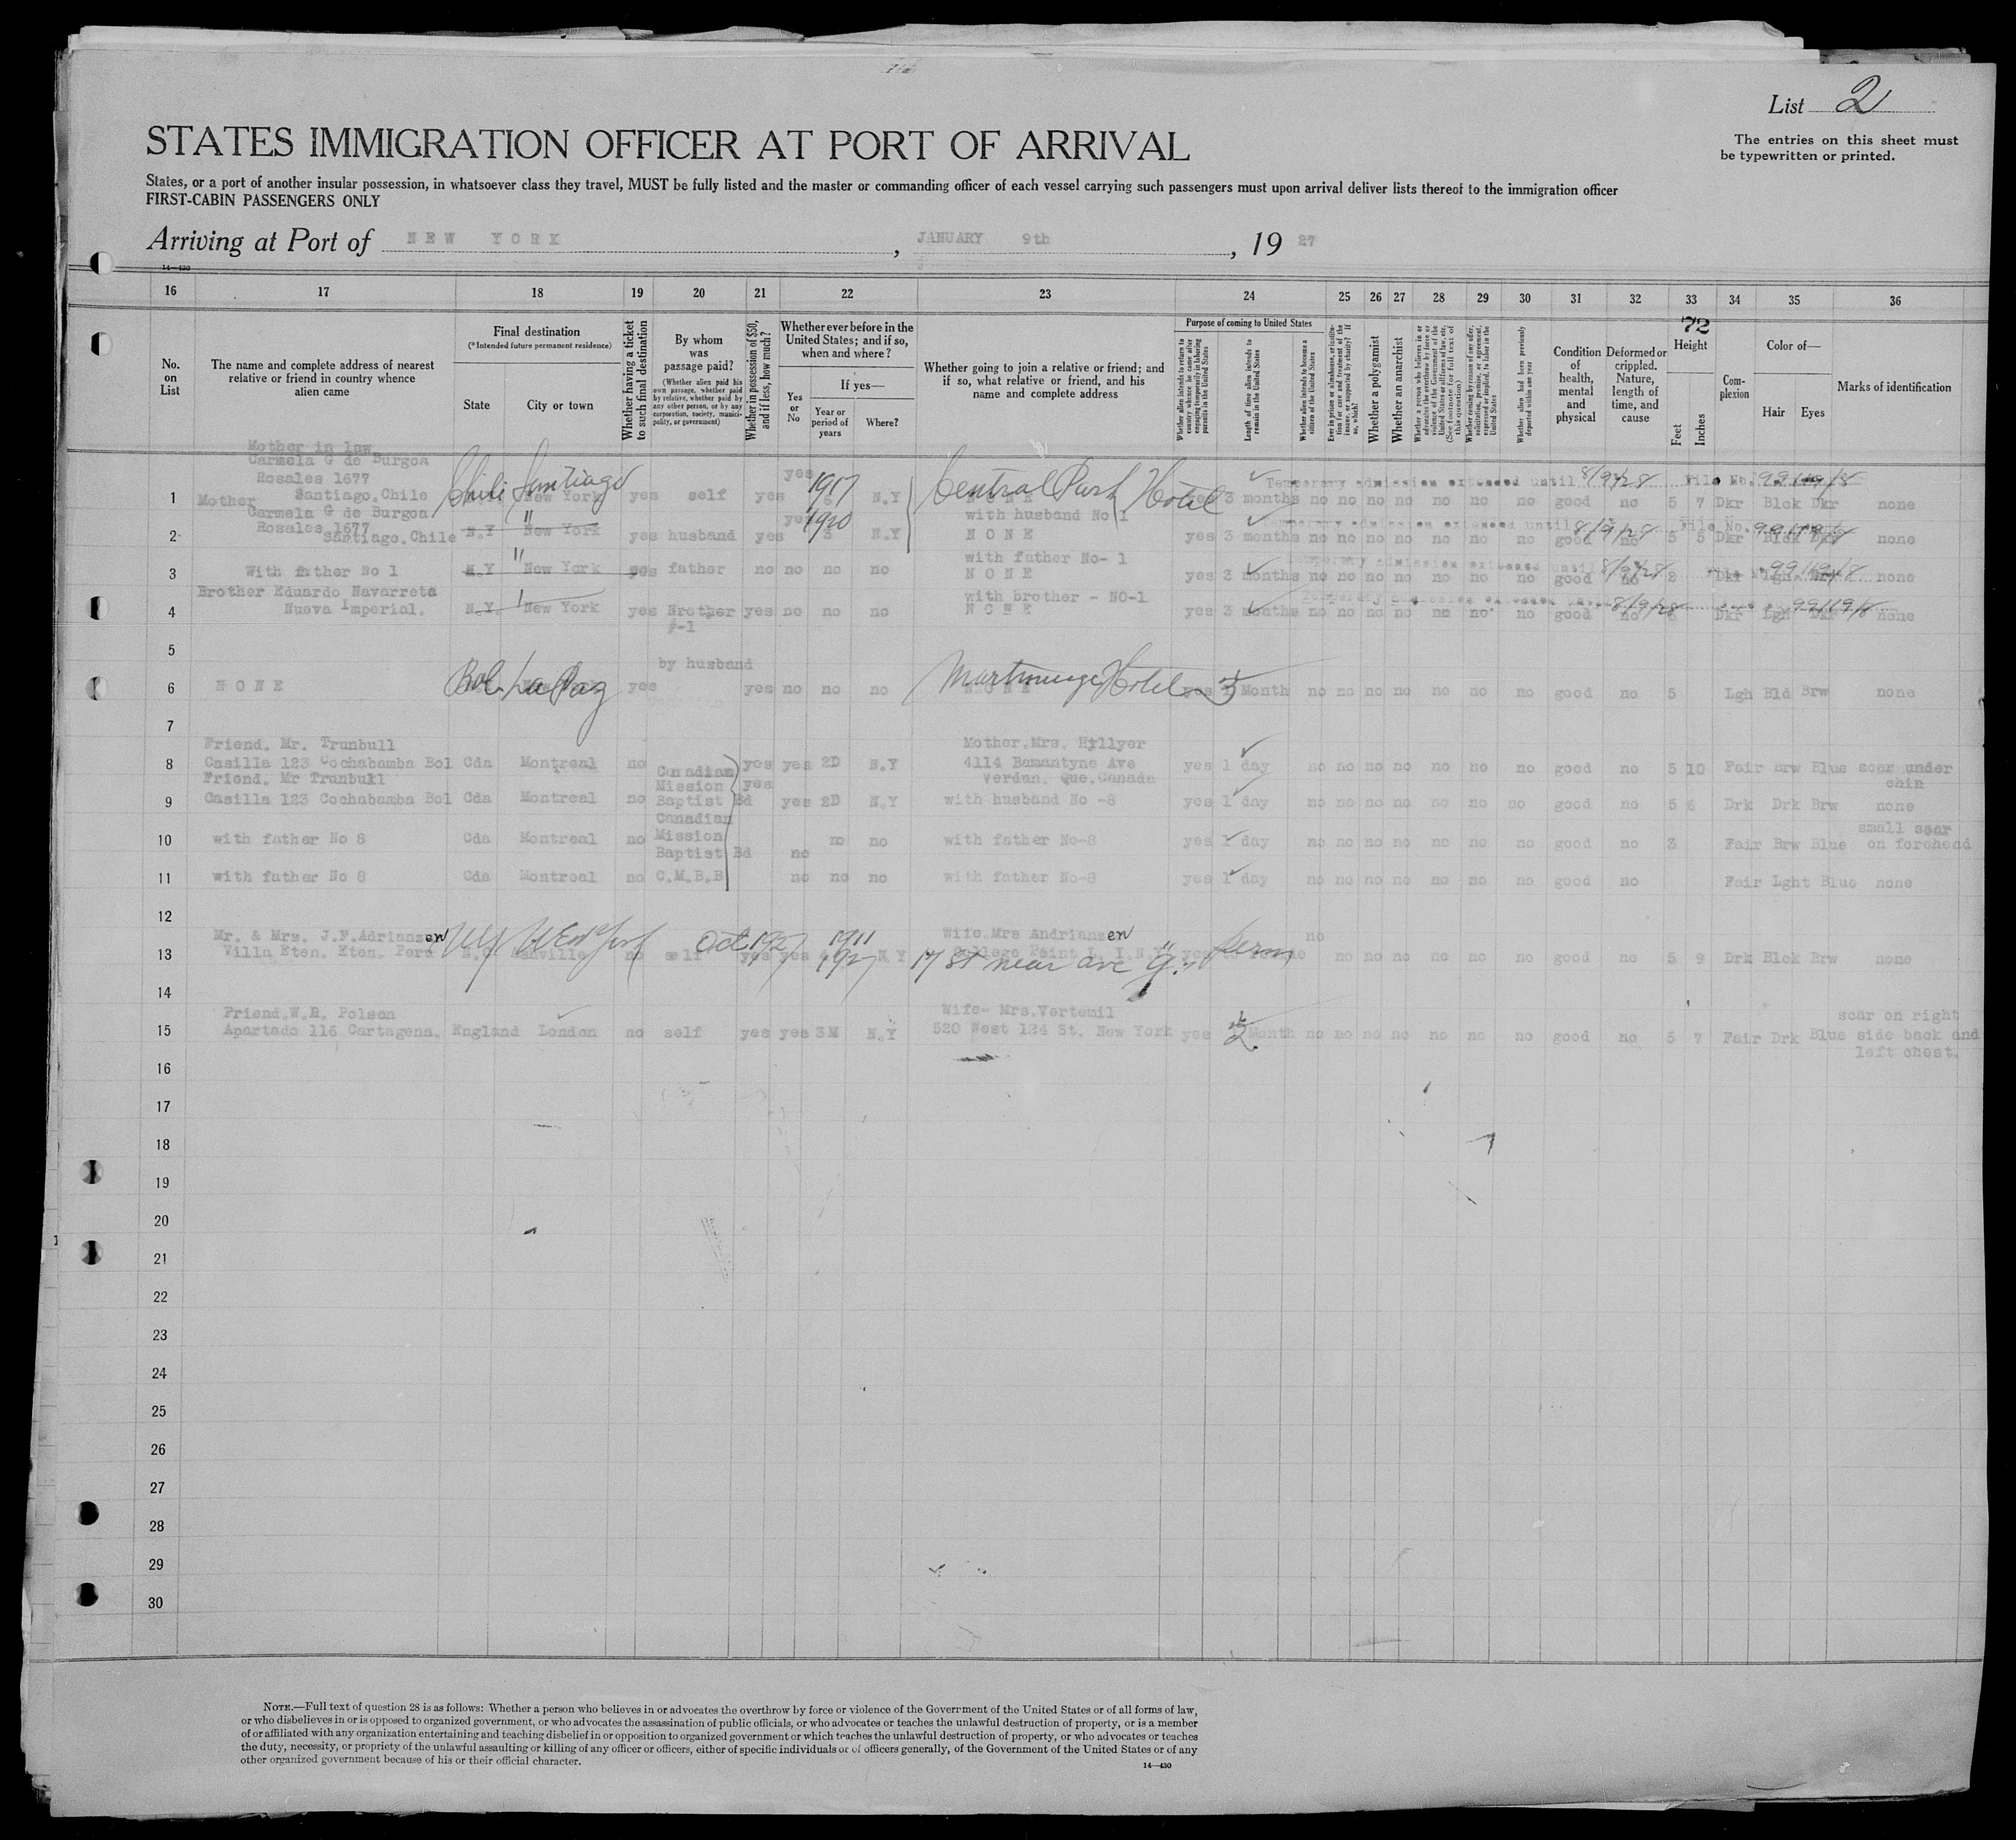 List 2
STATES IMMIGRATION OFFICER AT PORT OF ARRIVAL
The entries on this sheet must
be typewritten or printed.
States, or a port of another insular possession, in whatsoever class they travel, MUST be fully listed and the master or commanding officer of each vessel carrying such passengers must upon arrival deliver lists thereof to the immigration officer
FIRST-CABIN PASSENGERS ONLY
Arriving at Port of NEW YORK, JANUARY 9th, 1927
14—430
16 17 18 19 20 21 22 23 24 25 26 27 28 29 30 31 32 33 34 35 36
No. on List
The name and complete address of nearest relative or friend in country whence alien came
Final destination
(*Intended future permanent residence)
State
City or town
Whether having a ticket to such final destination
By whom was passage paid?
(Whether alien paid his own passage, whether paid by relative, whether paid by any other person, or by any corporation, society, municipality, or government)
Whether in possession of $50, and if less, how much?
Whether ever before in the United States; and if so, when and where?
Yes or No
If yes—
Year or period of years
Where?
Whether going to join a relative or friend; and if so, what relative or friend, and his name and complete address
Purpose of coming to United States
Whether alien intends to return to country whence he came after engaging temporarily in laboring pursuits in the United States
Length of time alien intends to remain in the United States
Whether alien intends to become a citizen of the United States
Ever in prison or almshouse, or institution for care and treatment of the insane, or supported by charity? If so, which?
Whether a polygamist
Whether an anarchist
Whether a person who believes in or advocates the overthrow by force or violence of the Government of the United States or all forms of law, etc. (See footnote for full text of this question)
Whether coming by reason of any offer, solicitation, promise, or agreement, expressed or implied, to labor in the United States
Whether alien had been previously deported within one year
Condition of health, mental and physical
Deformed or crippled. Nature, length of time, and cause
72
Height
Feet
Inches
Complexion
Color of—
Hair
Eyes
Marks of identification
Mother in law
Carmela G de Burgoa
Rosales 1677
1 Santiago, Chile Chile Santiago New York yes self yes yes 1917 N.Y Central Park Hotel 3 months no no no no no no no good 5 7 Dkr Blck Dkr none
Temporary admission extended until 8/9/28 File No. 99119/8
Mother
Carmela G de Burgoa
Rosales 1677
with husband No 1
2 Santiago, Chile N.Y " New York yes husband yes yes 1920 N.Y NONE yes 3 months no no no no no no no good no 5 5 Dkr Blck Dkr none
Temporary admission extended until 8/9/28 File No. 99119/8
with father No- 1
3 With father No 1 N.Y " New York yes father no no no no NONE yes 3 months no no no no no no no good no Dkr none
Temporary admission extended until 8/9/28 99119/8
Brother Eduardo Navarreta
with brother - NO-1
4 Nueva Imperial. N.Y. New York yes Brother #-1 yes no no no NONE yes 3 months no no no no no no no good no Dkr Lgh Dkr none
8/9/28 99119/8
5
by husband
6 NONE Bol. La Paz yes yes no no no Martinique Hotel NONE yes Month no no no no no no no good no 5 Lgh Bld Brw none
7
Friend. Mr. Trunbull
Mother.Mrs. Hillyer
8 Casilla 123 Cochabamba Bol Cda Montreal no Canadian Mission Baptist Bd yes yes 2D N.Y 4114 Bamantyne Ave Verdun. Que.Canada yes 1 day no no no no no no no good no 5 10 Fair Brw Blue scar under chin
Friend. Mr Trunbull
9 Casilla 123 Cochabamba Bol Cda Montreal no yes yes 2D N.Y with husband No -8 yes 1 day no no no no no no no good no 5 6 Drk Drk Brw none
10 with father No 8 Cda Montreal no Canadian Mission Baptist Bd no no no with father No-8 yes 1 day no no no no no no no good no 3 Fair Brw Blue small scar on forehead
11 with father No 8 Cda Montreal no C.M.B.B no no no with father No-8 yes 1 day no no no no no no no good no Fair Lght Blue none
12
Mr. & Mrs. J.F.Adrianzen
Wife.Mrs Andrianzen
13 Villa Eten. Eten. Peru N.C. Ashville no self Oct 1927 yes yes 1911 1927 N Y College Point L.I.N.Y 17 St near ave yes perm no no no no no no no good no 5 9 Drk Blck Brw none
14
Friend.W.R. Polson
Wife- Mrs.Vertemil
15 Apartado 116 Cartagena. England London no self yes yes 3M N.Y 520 West 124 St. New York yes Month no no no no no no no good no 5 7 Fair Drk Blue scar on right side back and left chest.
16
17
18
19
20
21
22
23
24
25
26
27
28
29
30
NOTE.—Full text of question 28 is as follows: Whether a person who believes in or advocates the overthrow by force or violence of the Government of the United States or of all forms of law,
or who disbelieves in or is opposed to organized government, or who advocates the assassination of public officials, or who advocates or teaches the unlawful destruction of property, or is a member
of or affiliated with any organization entertaining and teaching disbelief in or opposition to organized government or which teaches the unlawful destruction of property, or who advocates or teaches
the duty, necessity, or propriety of the unlawful assaulting or killing of any officer or officers, either of specific individuals or of officers generally, of the Government of the United States or of any
other organized government because of his or their official character.
14—430